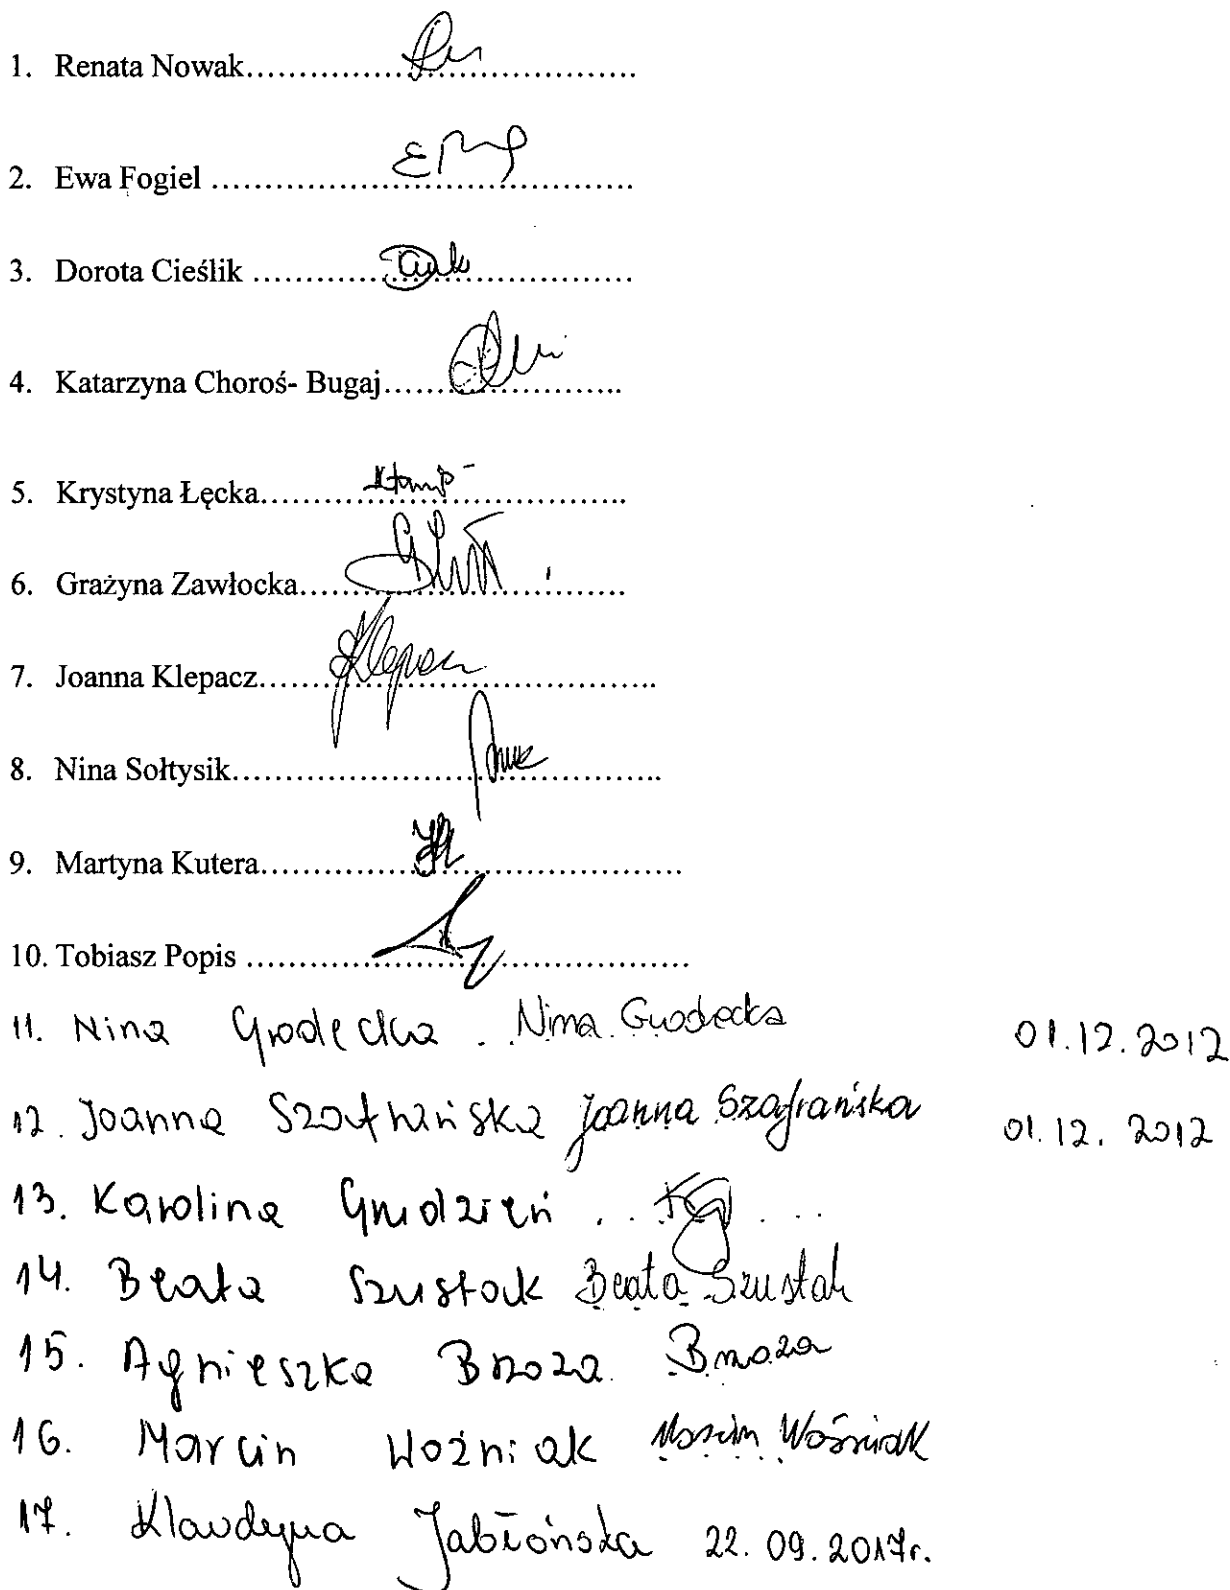 1. Renata Nowak.....................................
2. Ewa Fogiel ........................................
3. Dorota Cieślik ....................................
4. Katarzyna Choroś- Bugaj.......................
5. Krystyna Łęcka.....................................
6. Grażyna Zawłocka.................................
7. Joanna Klepacz....................................... Klepacz
8. Nina Sołtysik..........................................
9. Martyna Kutera........................................
10. Tobiasz Popis ..........................................
11. Nina Grodecka .. Nina Grodecka 01.12.2012
12. Joanna Szafrańska Joanna Szafrańska 01.12.2012
13. Karolina Grudzień .. KG ...
14. Beata Szustak Beata Szustak
15. Agnieszka Brzoza Brzoza
16. Marcin Woźniak Marcin Woźniak
17. Klaudyna Jabłońska 22.09.2017r.